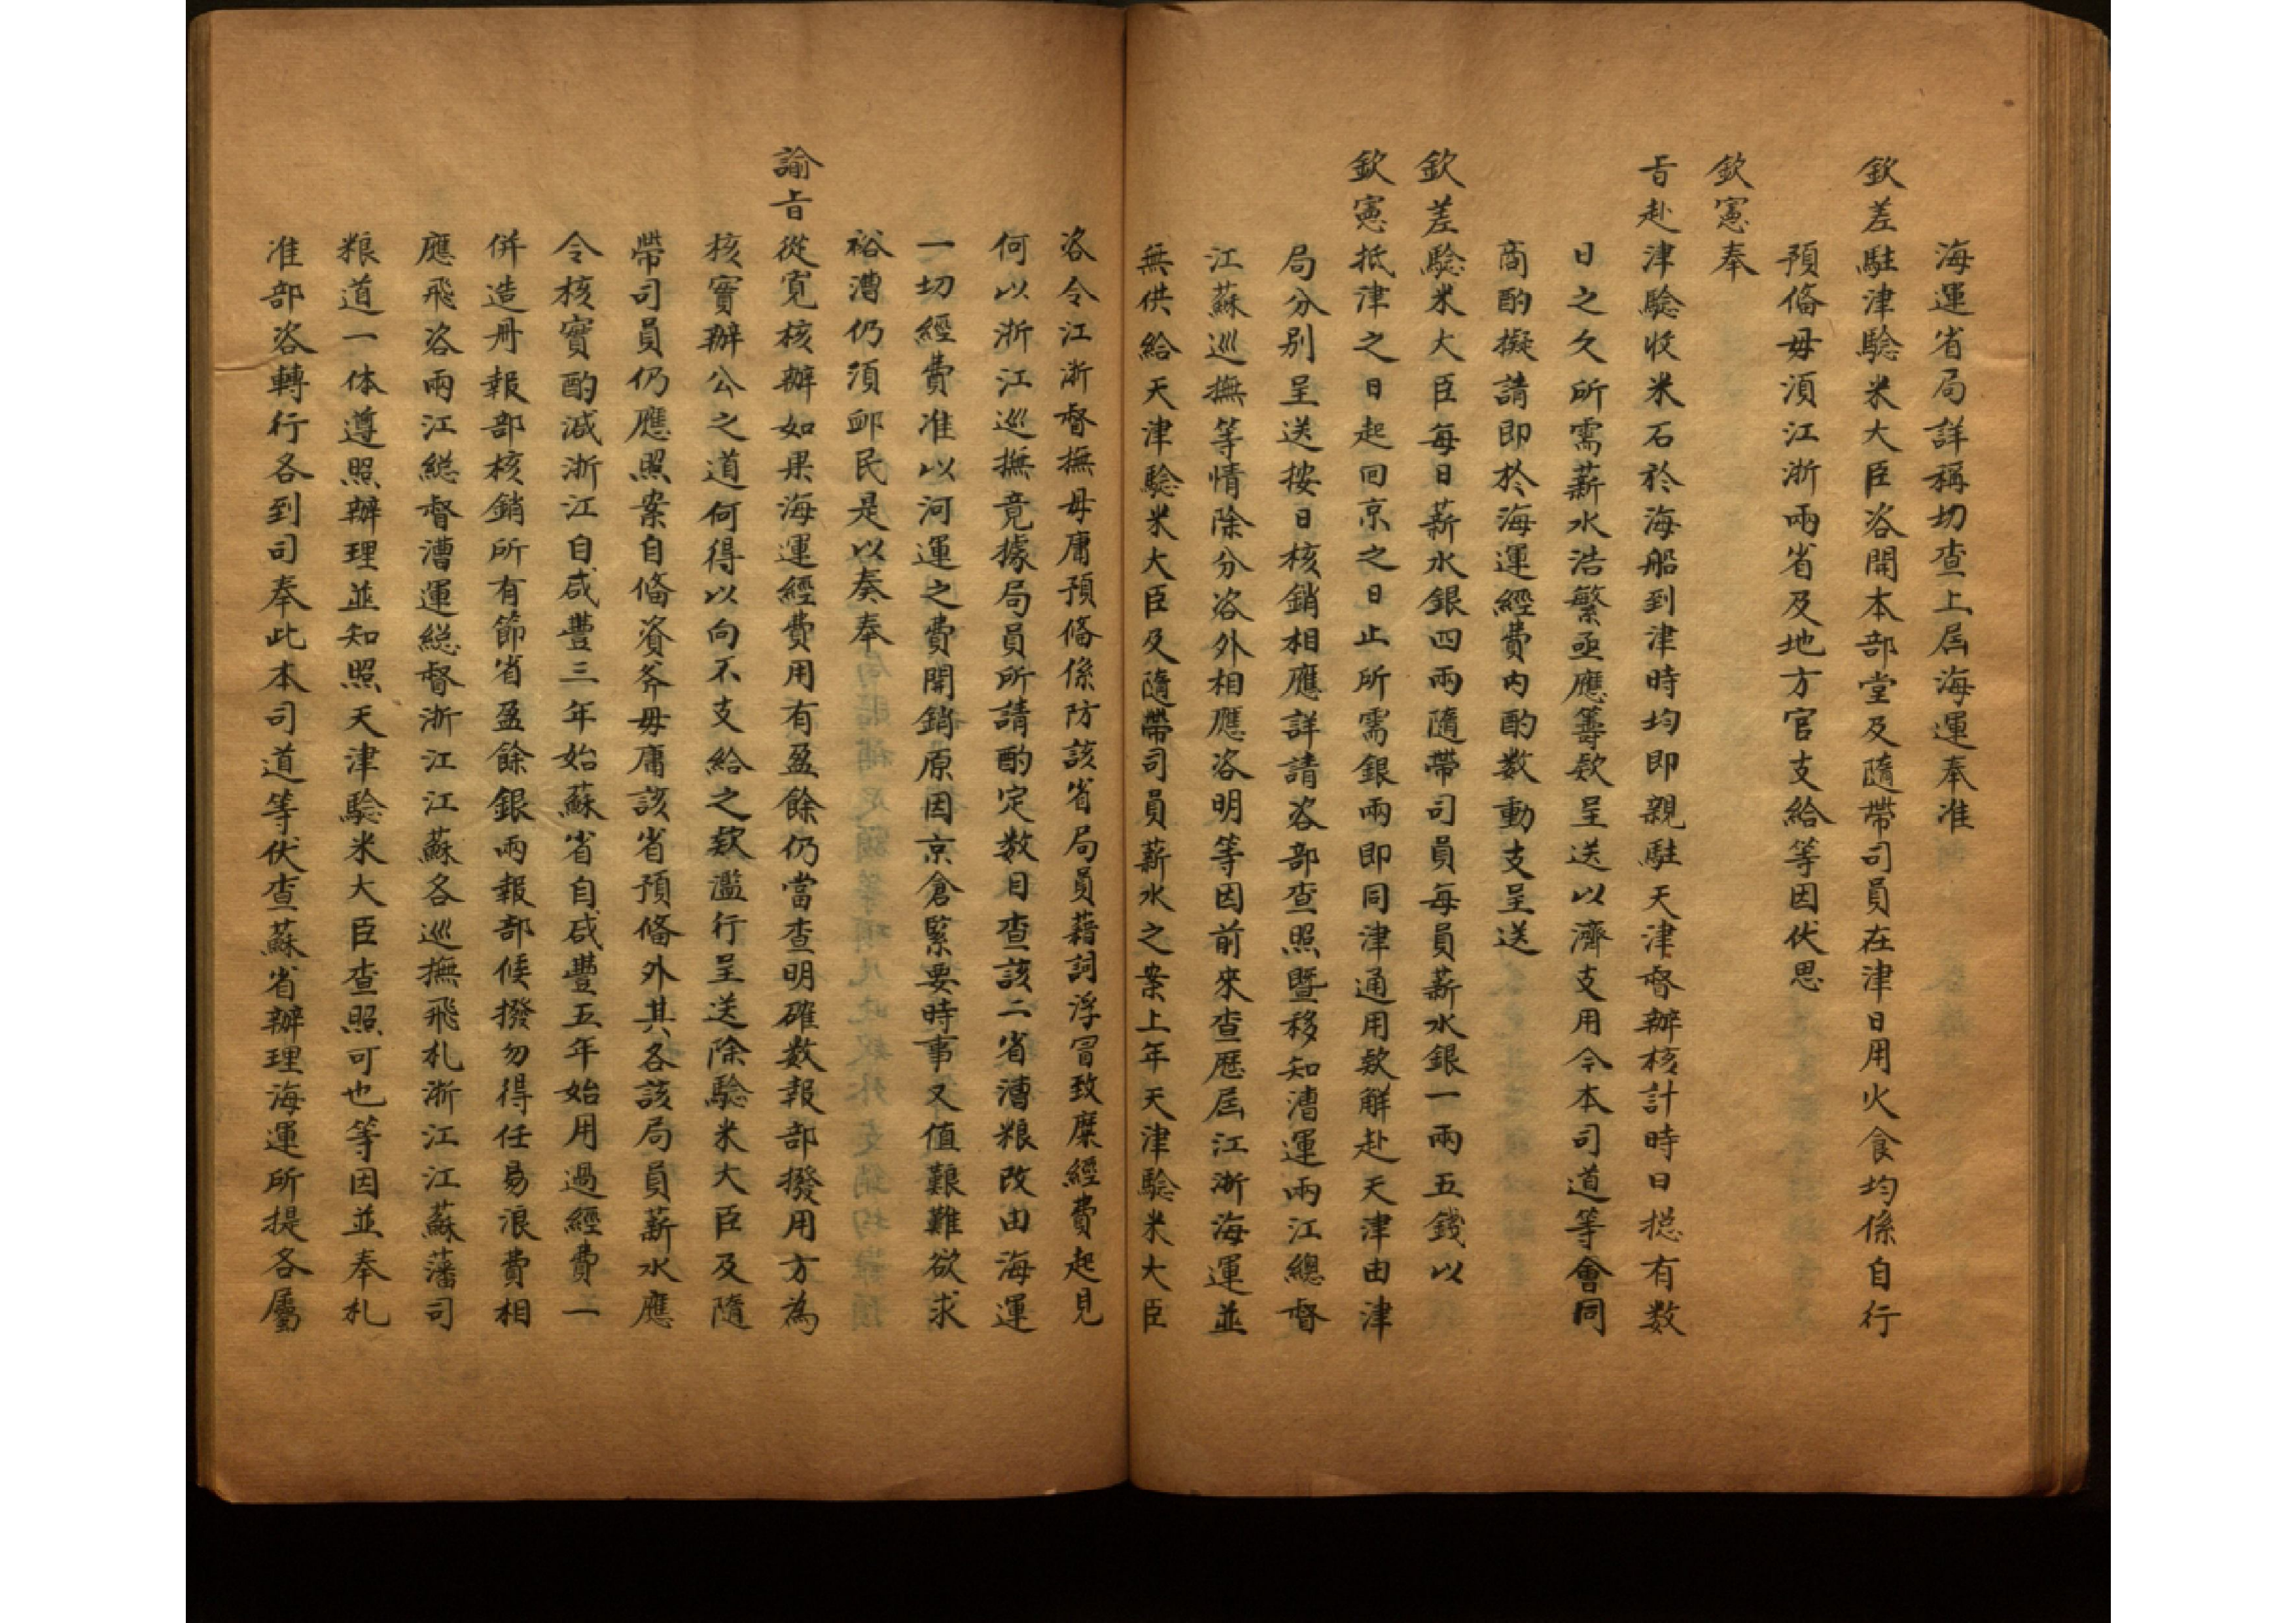 海運省局詳稱切查上屆海運奉准
欽差駐津驗米大臣咨開本部堂及隨帶司員在津日用火食均係自行
預俻毋湏江浙兩省及地方官支給等因伏思
欽憲奉
旨赴津驗收米石於海船到津時均即親駐天津督辦核計時日揔有数
日之久所需薪水浩繁亟應籌欵呈送以濟支用今本司道等會同
商酌擬請即於海運經費内酌数動支呈送
欽差驗米大臣每日薪水銀四兩隨帶司員每員薪水銀一兩五錢以
欽憲抵津之日起回京之日止所需銀兩即同津通用欵解赴天津由津
局分别呈送按日核銷相應詳請咨部查照暨移知漕運兩江總督
江蘇巡撫等情除分咨外相應咨明等因前來查歷屆江浙海運並
無供給天津驗米大臣及隨帶司員薪水之案上年天津驗米大臣
咨令江浙督撫毋庸預俻係防該省局員藉詞浮冒致糜經費起見
何以浙江巡撫竟據局員所請酌定数目查該二省漕粮改由海運
一切經費准以河運之費開銷原因京倉緊要時事又值艱難欲求
裕漕仍須邺民是以奏奉
諭旨從寛核辦如果海運經費用有盈餘仍當查明確数報部撥用方為
核實辦公之道何得以向不支給之欵濫行呈送除驗米大臣及隨
帶司員仍應照案自俻資斧毋庸該省預俻外其各該局員薪水應
令核實酌減浙江自咸豐三年始蘇省自咸豐五年始用過經費一
併造册報部核銷所有節省盈餘銀兩報部候撥勿得任易浪費相
應飛咨兩江總督漕運總督浙江江蘇各巡撫飛札浙江江蘇藩司
粮道一体遵照辦理並知照天津驗米大臣查照可也等因並奉札
准部咨轉行各到司奉此本司道等伏查蘇省辦理海運所提各屬